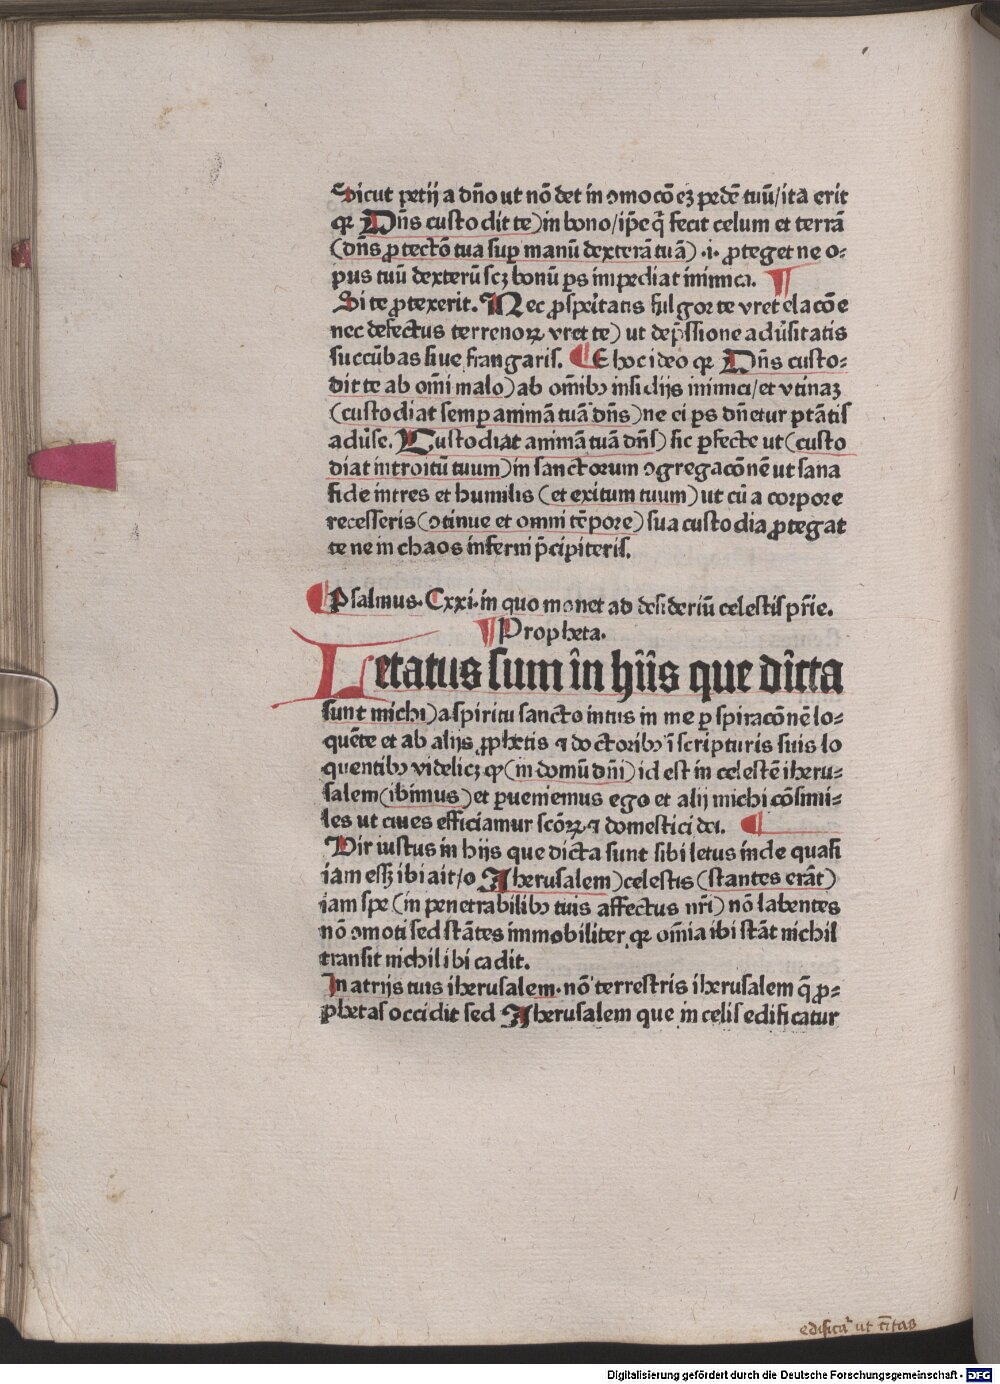 Sicut petij a dño ut nō det in ↄmocōeꝫ pedē tuū/ita erit
qꝛ Dñs custodit te)in bono/ip̄e q̄ fecit celum et terrā
(dñs ꝓtectō tua suꝑ manū dexterā tuā) .i. ꝓteget ne o⸗
pus tuū dexterū scꝫ bonū ꝑs impediat inimica.
Si te ꝓtexerit. Nec ꝓspeitatis fulgor te vret elacōe
nec defectus terrenoꝝ vret te) ut dep̄ssione adūsitatis
succūbas siue frangaris. Et hoc ideo qꝛ Dñs custo⸗
dit te ab om̄i malo)ab om̄ibꝰ insidijs inimici/et vtinaꝫ
(custodiat semꝑ animā tuā dñs)ne ei ꝑs dñetur ptātis
adūse. Custodiat animā tuā dñs) sic ꝑfecte ut(custo
diat introitū tuum)in sanctorum ↄgregacōnē ut sana
fide intres et humilis (et exitum tuum)ut cū a corpore
recesseris(ↄtinue et omni tēpore)sua custodia ꝓtegat
te ne in chaos inferni p̄cipiteris.
Psalmus. Cxxi. in quo monet ad desideriū celestis pr̄ie.
Propheta.
Letatus sum in hijs que dicta
sunt michi)a spiritu sancto intus in me ꝑ spiracōnē lo⸗
quēte et ab alijs ꝓphetis ⁊ doctoribꝰ ī scripturis suis lo
quentibꝰ videlicꝫ qꝛ(in domū dñi)id est in celestē iheru⸗
salem(ibimus)et ꝑueniemus ego et alij michi cōsimi⸗
les ut ciues efficiamur scōꝝ ⁊ domestici dei.
Vir iustus in hijs que dicta sunt sibi letus inde quasi
iam essꝫ ibi ait/o Iherusalem)celestis (stantes erāt)
iam spe (in penetrabilibꝰ tuis affectus nr̄i) nō labentes
nō ↄmoti sed stātes immobiliter qꝛ om̄ia ibi stāt nichil
transit nichil ibi cadit.
In atrijs tuis iherusalem. nō terrestris iherusalem q̄ ꝓ⸗
phetas occidit sed Iherusalem que in celis edificatur
edificat᷑ ut ciuitas
Digitalisierung gefördert durch die Deutsche Forschungsgemeinschaft - DFG